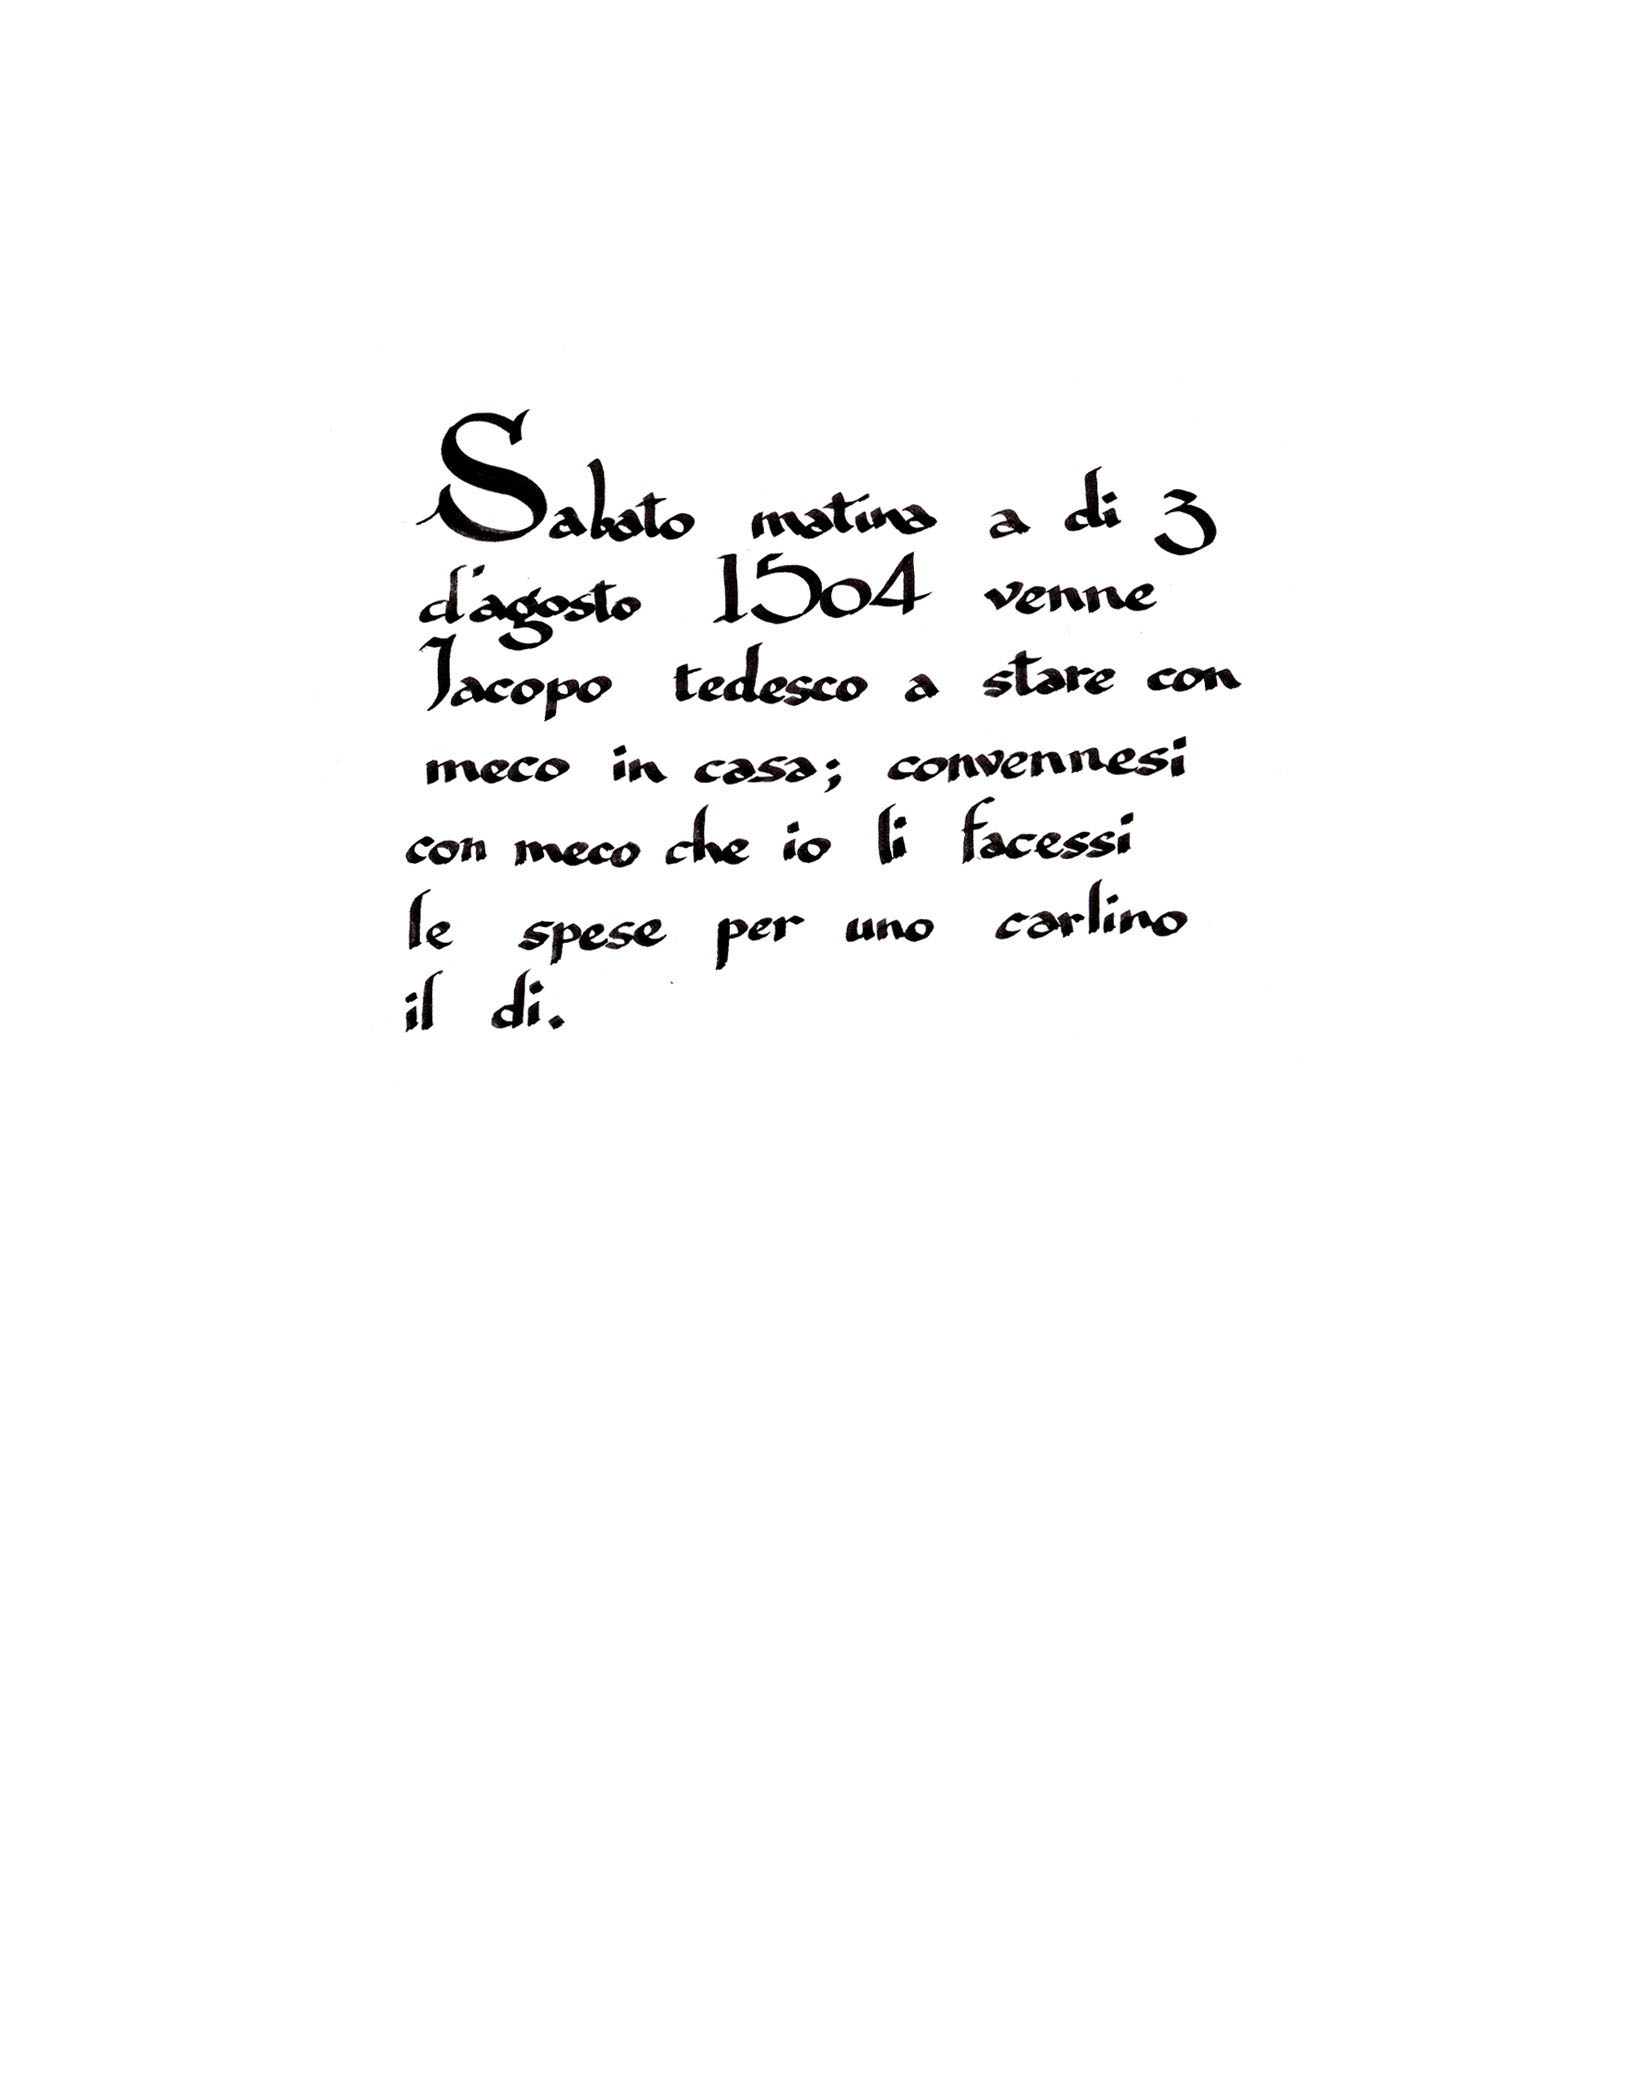 Sabato matina a di 3
d'agosto 1504 venne
Jacopo tedesco a stare con
meco in casa; convennesi
con meco che io li facessi
le spese per uno carlino
il di.